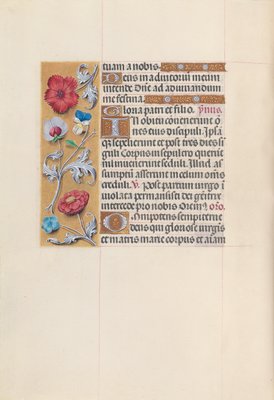 tuam a nobis.
Deus in adiutorium meum
intende Dñe ad adiuvandum
me festina.
Gloria patri et filio. ymus.
Ibi obiten convenerunt o
nes eius discipuli. Ipsā
qz sepelierunt et post tres dies si
guli corpus in sepulcro querentes
inuenierunt creduli. Illud as
sumptū asserunt in celum om̄s
creduli. v. Post partum virgo i
uiolata permansisti dei genitrix
intercede pro nobis Orem9. oro.
Omnipotens sempiterne
deus qui gloriose virgis
et matris marie corpus et aīam